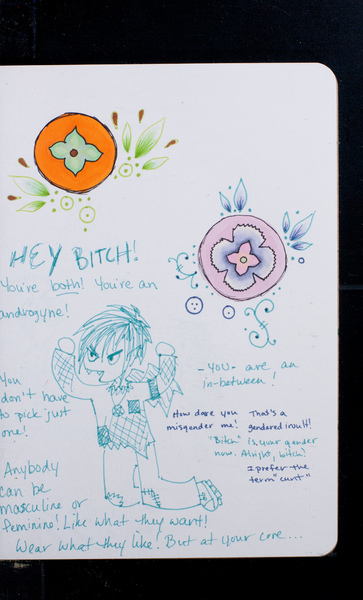 HEY BITCH!
You're both! You're an
androgyne!
You
don't have
to pick just
one!
Anybody
can be
masculine or
feminine! Like what they want!
Wear what they like! But at your core...
-YOU- are, an
in-between!
How dare you
misgender me!
That's a
gendered insult!
"Bitch" is your gender
now. Alright, bitch!
I prefer the
term "cunt"